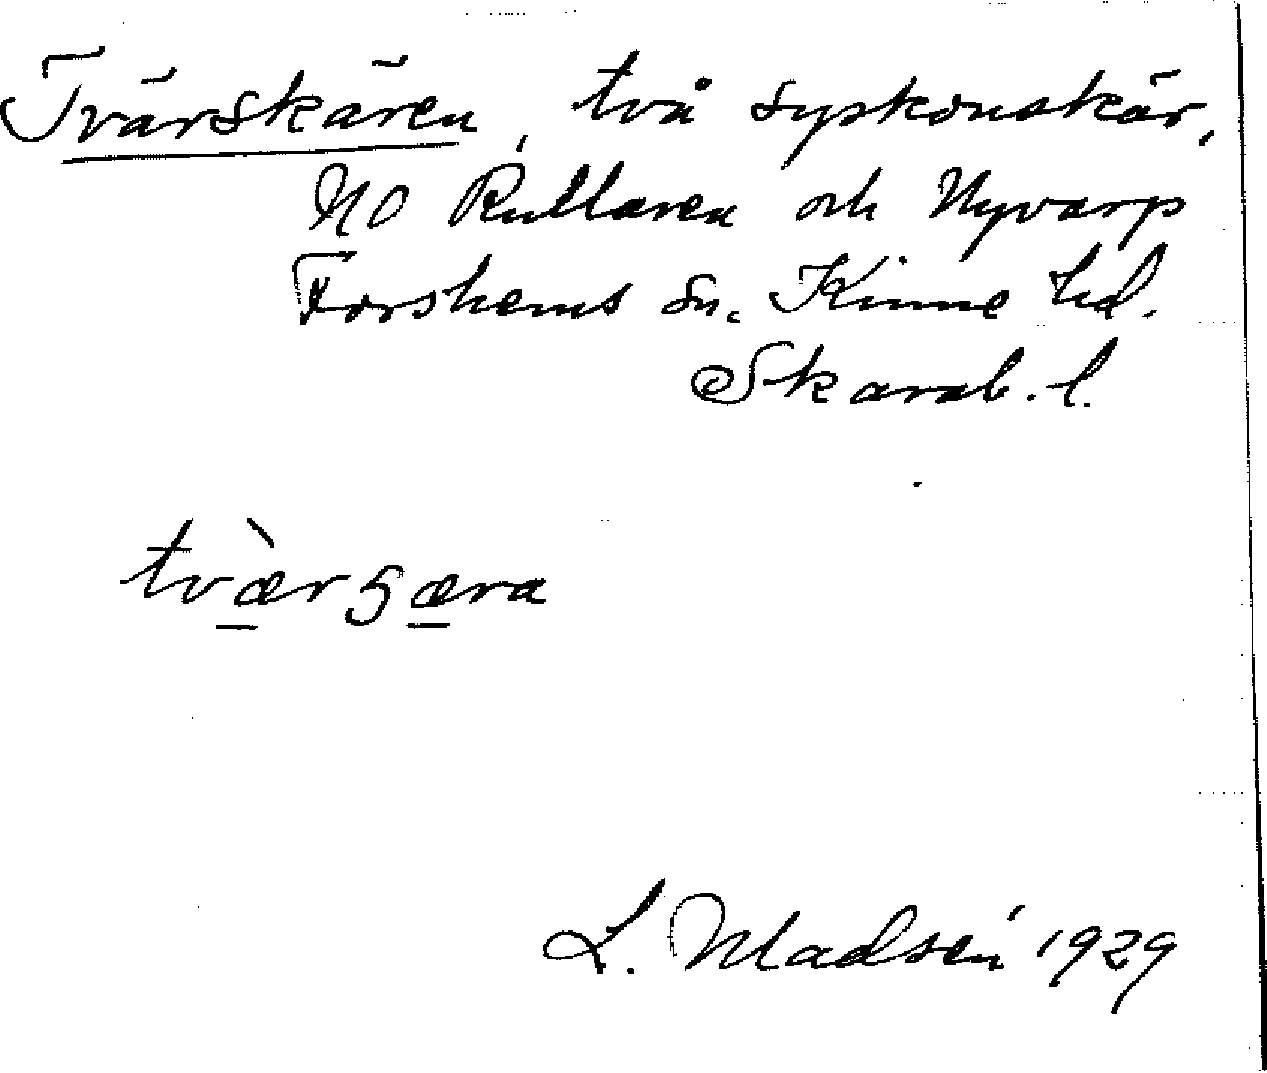 Tvärskären, två syskonskär,
NO Rullaren och Nyvarp
Forshems sn. Kinne hd.
Skarab. l.
tvæ̀rʒæra
L. Madsén 1929